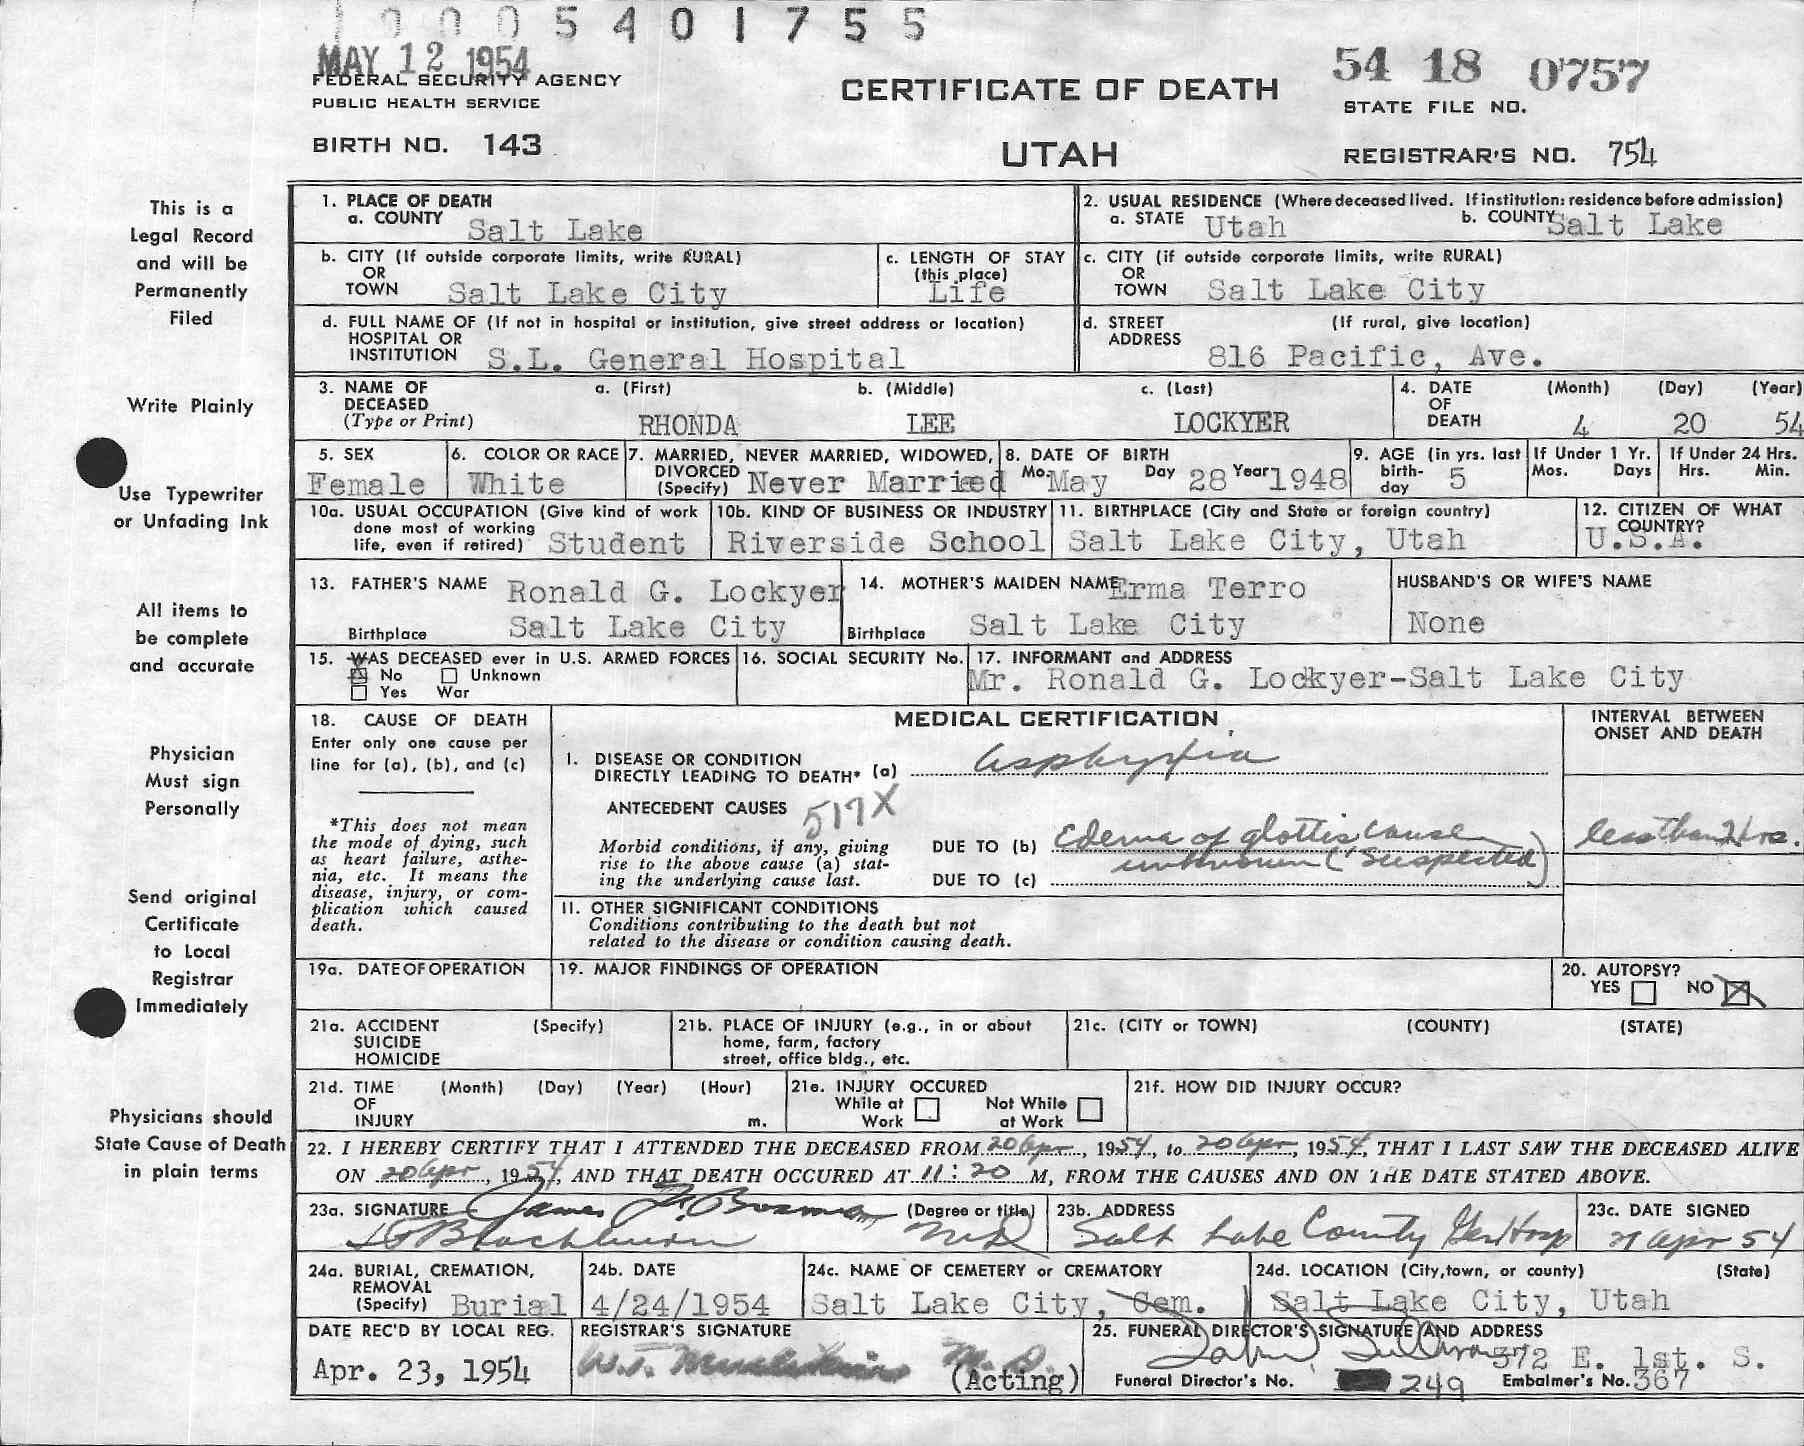 1 0 0 0 5 4 0 1 7 5 5
MAY 12 1954
FEDERAL SECURITY AGENCY
PUBLIC HEALTH SERVICE
BIRTH NO. 143
CERTIFICATE OF DEATH
UTAH
54 18 0757
STATE FILE NO.
REGISTRAR'S NO. 754
This is a
Legal Record
and will be
Permanently
Filed
Write Plainly
Use Typewriter
or Unfading Ink
All items to
be complete
and accurate
Physician
Must sign
Personally
Send original
Certificate
to Local
Registrar
Immediately
Physicians should
State Cause of Death
in plain terms
1. PLACE OF DEATH
a. COUNTY Salt Lake
2. USUAL RESIDENCE (Where deceased lived. If institution: residence before admission)
a. STATE Utah b. COUNTY Salt Lake
b. CITY (If outside corporate limits, write RURAL)
OR
TOWN Salt Lake City
c. LENGTH OF STAY
(this place)
Life
c. CITY (if outside corporate limits, write RURAL)
OR
TOWN Salt Lake City
d. FULL NAME OF (If not in hospital or institution, give street address or location)
HOSPITAL OR
INSTITUTION S.L. General Hospital
d. STREET (If rural, give location)
ADDRESS
816 Pacific, Ave.
3. NAME OF a. (First) b. (Middle) c. (Last)
DECEASED
(Type or Print) RHONDA LEE LOCKYER
4. DATE (Month) (Day) (Year)
OF
DEATH 4 20 54
5. SEX
Female
6. COLOR OR RACE
White
7. MARRIED, NEVER MARRIED, WIDOWED,
DIVORCED
(Specify) Never Married
8. DATE OF BIRTH
Mo. May Day 28 Year 1948
9. AGE (in yrs. last
birth-
day 5
If Under 1 Yr.
Mos. Days
If Under 24 Hrs.
Hrs. Min.
10a. USUAL OCCUPATION (Give kind of work
done most of working
life, even if retired) Student
10b. KIND OF BUSINESS OR INDUSTRY
Riverside School
11. BIRTHPLACE (City and State or foreign country)
Salt Lake City, Utah
12. CITIZEN OF WHAT
COUNTRY?
U.S.A.
13. FATHER'S NAME Ronald G. Lockyer
Birthplace Salt Lake City
14. MOTHER'S MAIDEN NAME Erma Terro
Birthplace Salt Lake City
HUSBAND'S OR WIFE'S NAME
None
15. WAS DECEASED ever in U.S. ARMED FORCES
No Unknown
Yes War
16. SOCIAL SECURITY No.
17. INFORMANT and ADDRESS
Mr. Ronald G. Lockyer-Salt Lake City
18. CAUSE OF DEATH
Enter only one cause per
line for (a), (b), and (c)
*This does not mean
the mode of dying, such
as heart failure, asthe-
nia, etc. It means the
disease, injury, or com-
plication which caused
death.
MEDICAL CERTIFICATION
I. DISEASE OR CONDITION
DIRECTLY LEADING TO DEATH* (a) Asphyxia
ANTECEDENT CAUSES 517X
Morbid conditions, if any, giving
rise to the above cause (a) stat-
ing the underlying cause last.
DUE TO (b) Edema of glottis cause
unknown (suspected)
DUE TO (c)
INTERVAL BETWEEN
ONSET AND DEATH
less than 2 hrs.
II. OTHER SIGNIFICANT CONDITIONS
Conditions contributing to the death but not
related to the disease or condition causing death.
19a. DATE OF OPERATION
19. MAJOR FINDINGS OF OPERATION
20. AUTOPSY?
YES NO
21a. ACCIDENT (Specify)
SUICIDE
HOMICIDE
21b. PLACE OF INJURY (e.g., in or about
home, farm, factory
street, office bldg., etc.
21c. (CITY or TOWN) (COUNTY) (STATE)
21d. TIME (Month) (Day) (Year) (Hour)
OF
INJURY m.
21e. INJURY OCCURED
While at Work Not While at Work
21f. HOW DID INJURY OCCUR?
22. I HEREBY CERTIFY THAT I ATTENDED THE DECEASED FROM 20 Apr, 1954, to 20 Apr, 1954, THAT I LAST SAW THE DECEASED ALIVE
ON 20 Apr, 1954, AND THAT DEATH OCCURED AT 11:20 M, FROM THE CAUSES AND ON THE DATE STATED ABOVE.
23a. SIGNATURE James F. Bosman (Degree or title)
Blackburn MD
23b. ADDRESS
Salt Lake County Gen Hosp
23c. DATE SIGNED
21 Apr 54
24a. BURIAL, CREMATION,
REMOVAL
(Specify) Burial
24b. DATE
4/24/1954
24c. NAME OF CEMETERY or CREMATORY
Salt Lake City, Cem.
24d. LOCATION (City, town, or county) (State)
Salt Lake City, Utah
DATE REC'D BY LOCAL REG.
Apr. 23, 1954
REGISTRAR'S SIGNATURE
M.D.
(Acting)
25. FUNERAL DIRECTOR'S SIGNATURE AND ADDRESS
372 E. 1st. S.
Funeral Director's No. 249 Embalmer's No. 367